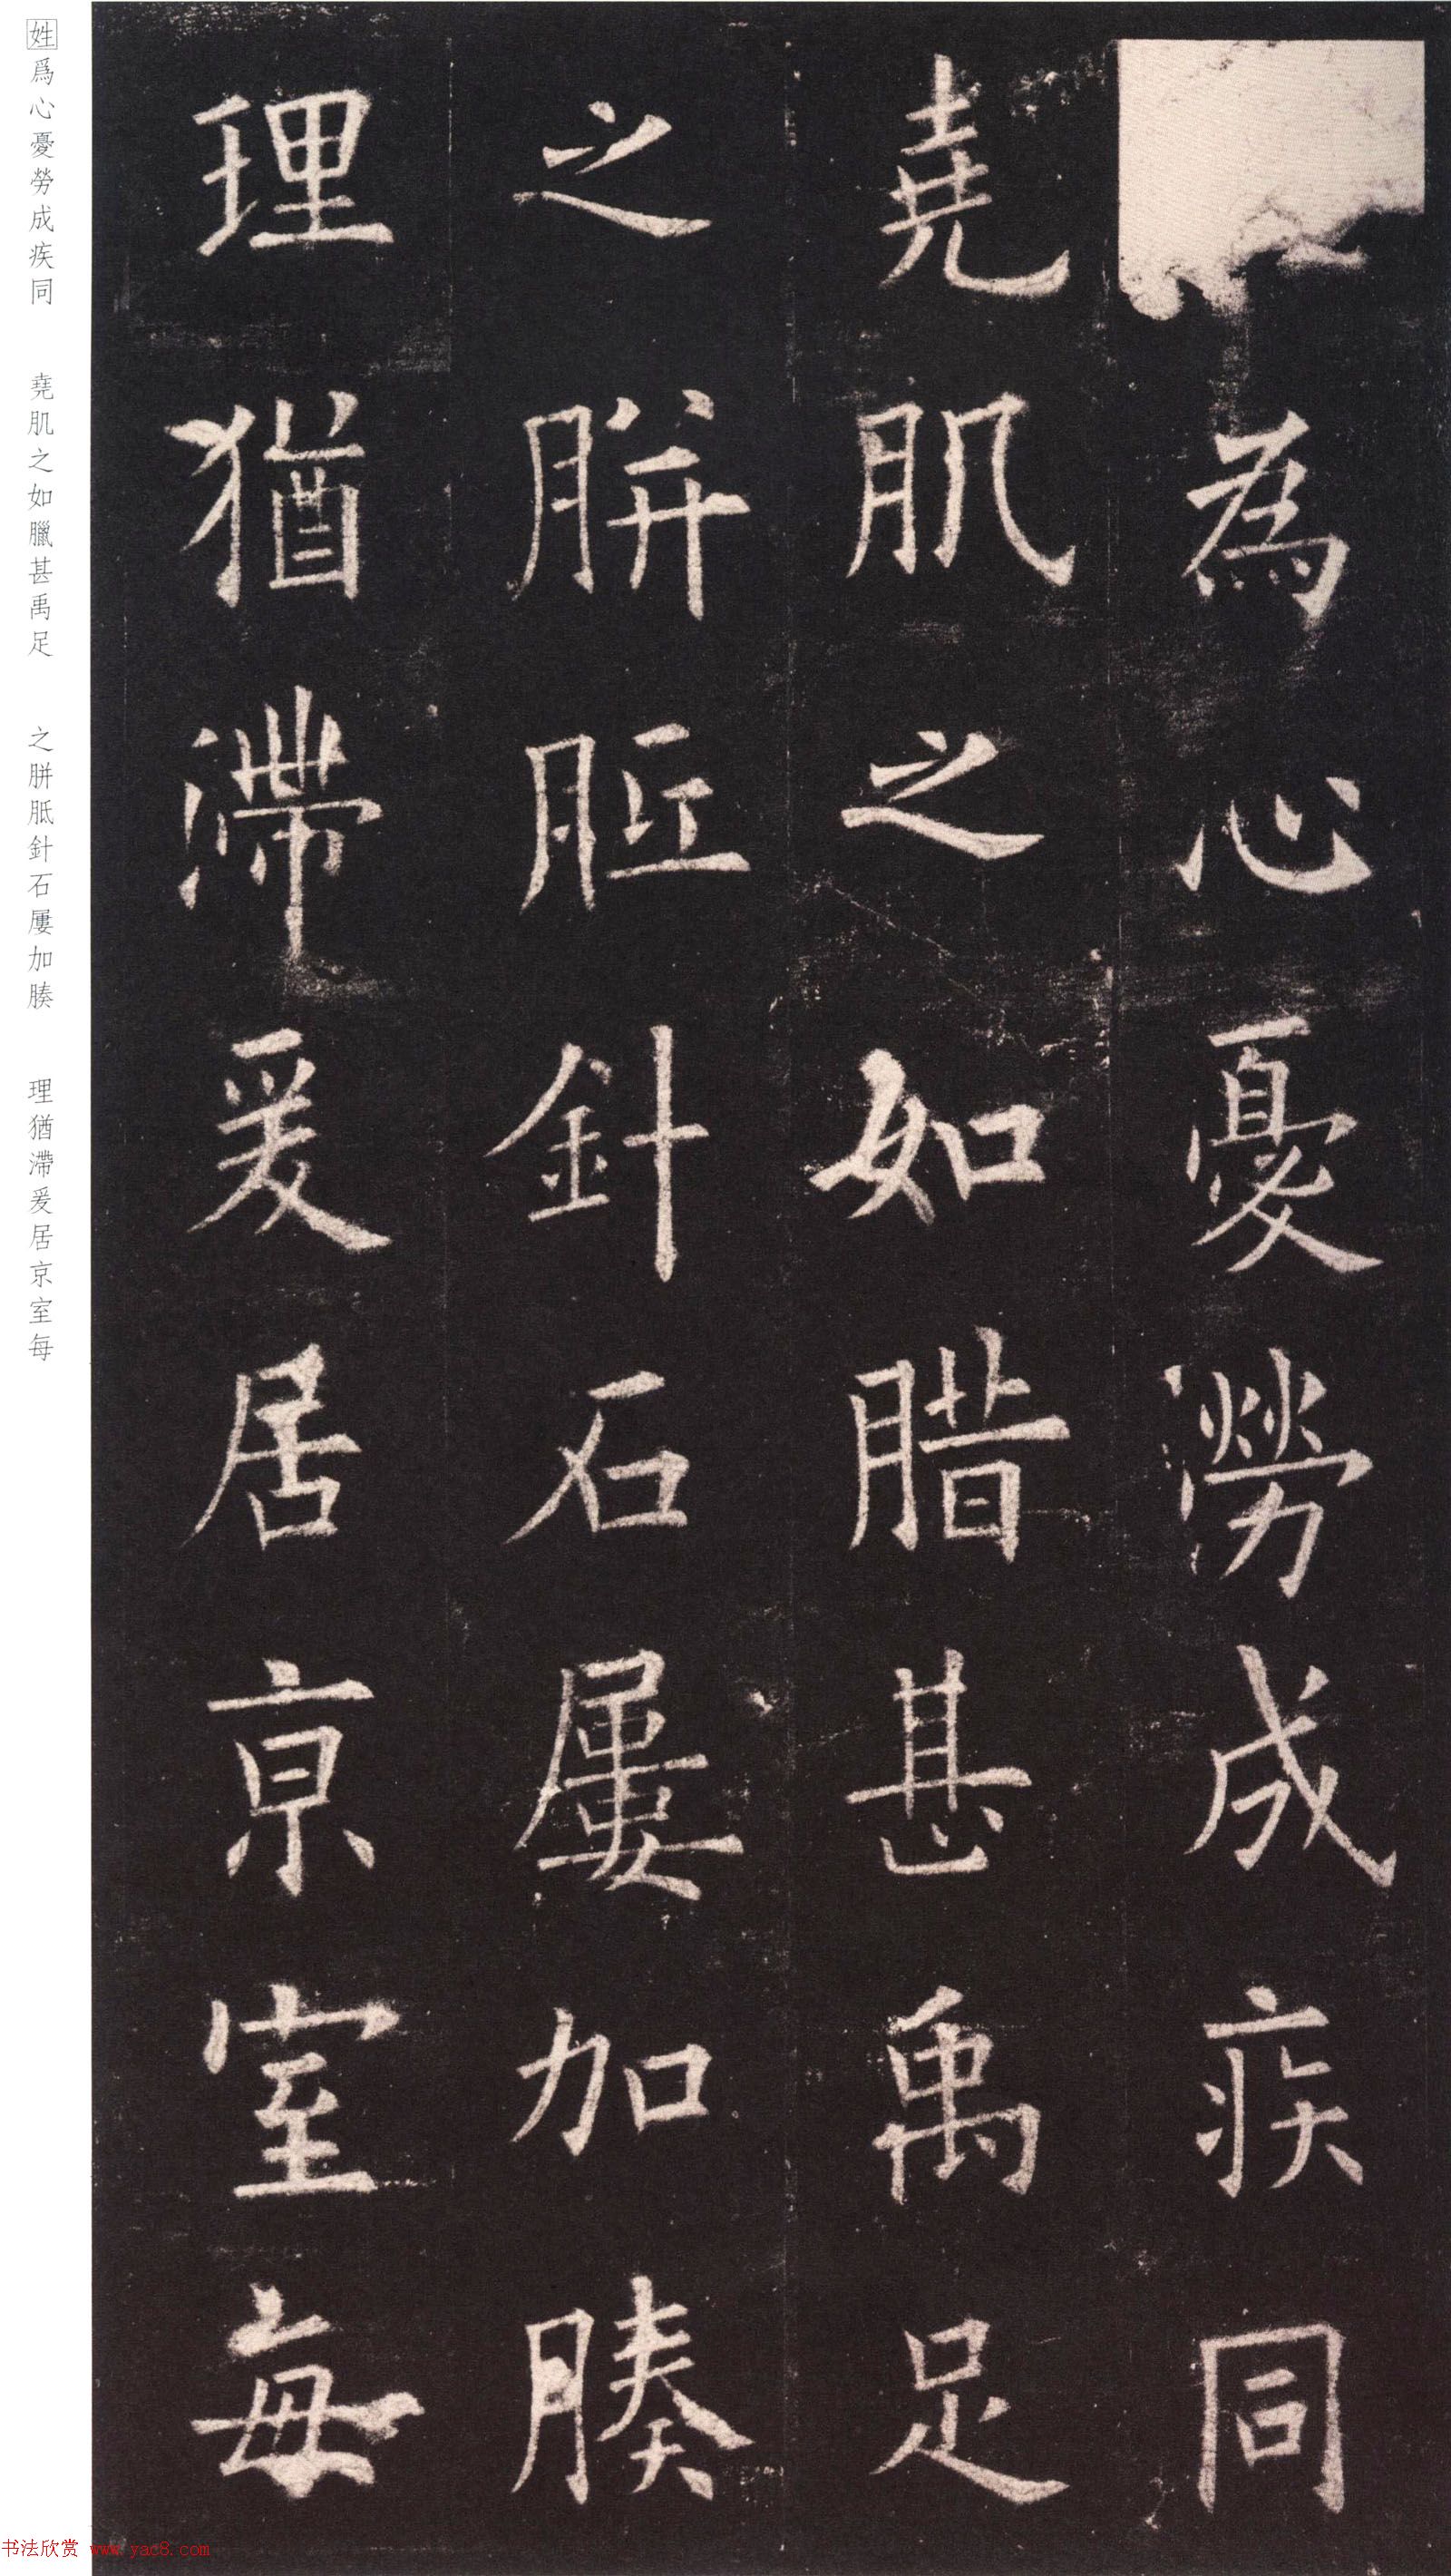 為心憂勞成疾同
堯肌之如腊甚禹足
之胼胝針石屢加腠
理猶滯爰居京室每
姓爲心憂勞成疾同 堯肌之如臘甚禹足 之胼胝針石屢加腠 理猶滯爰居京室每
书法欣赏 www.yac8.com